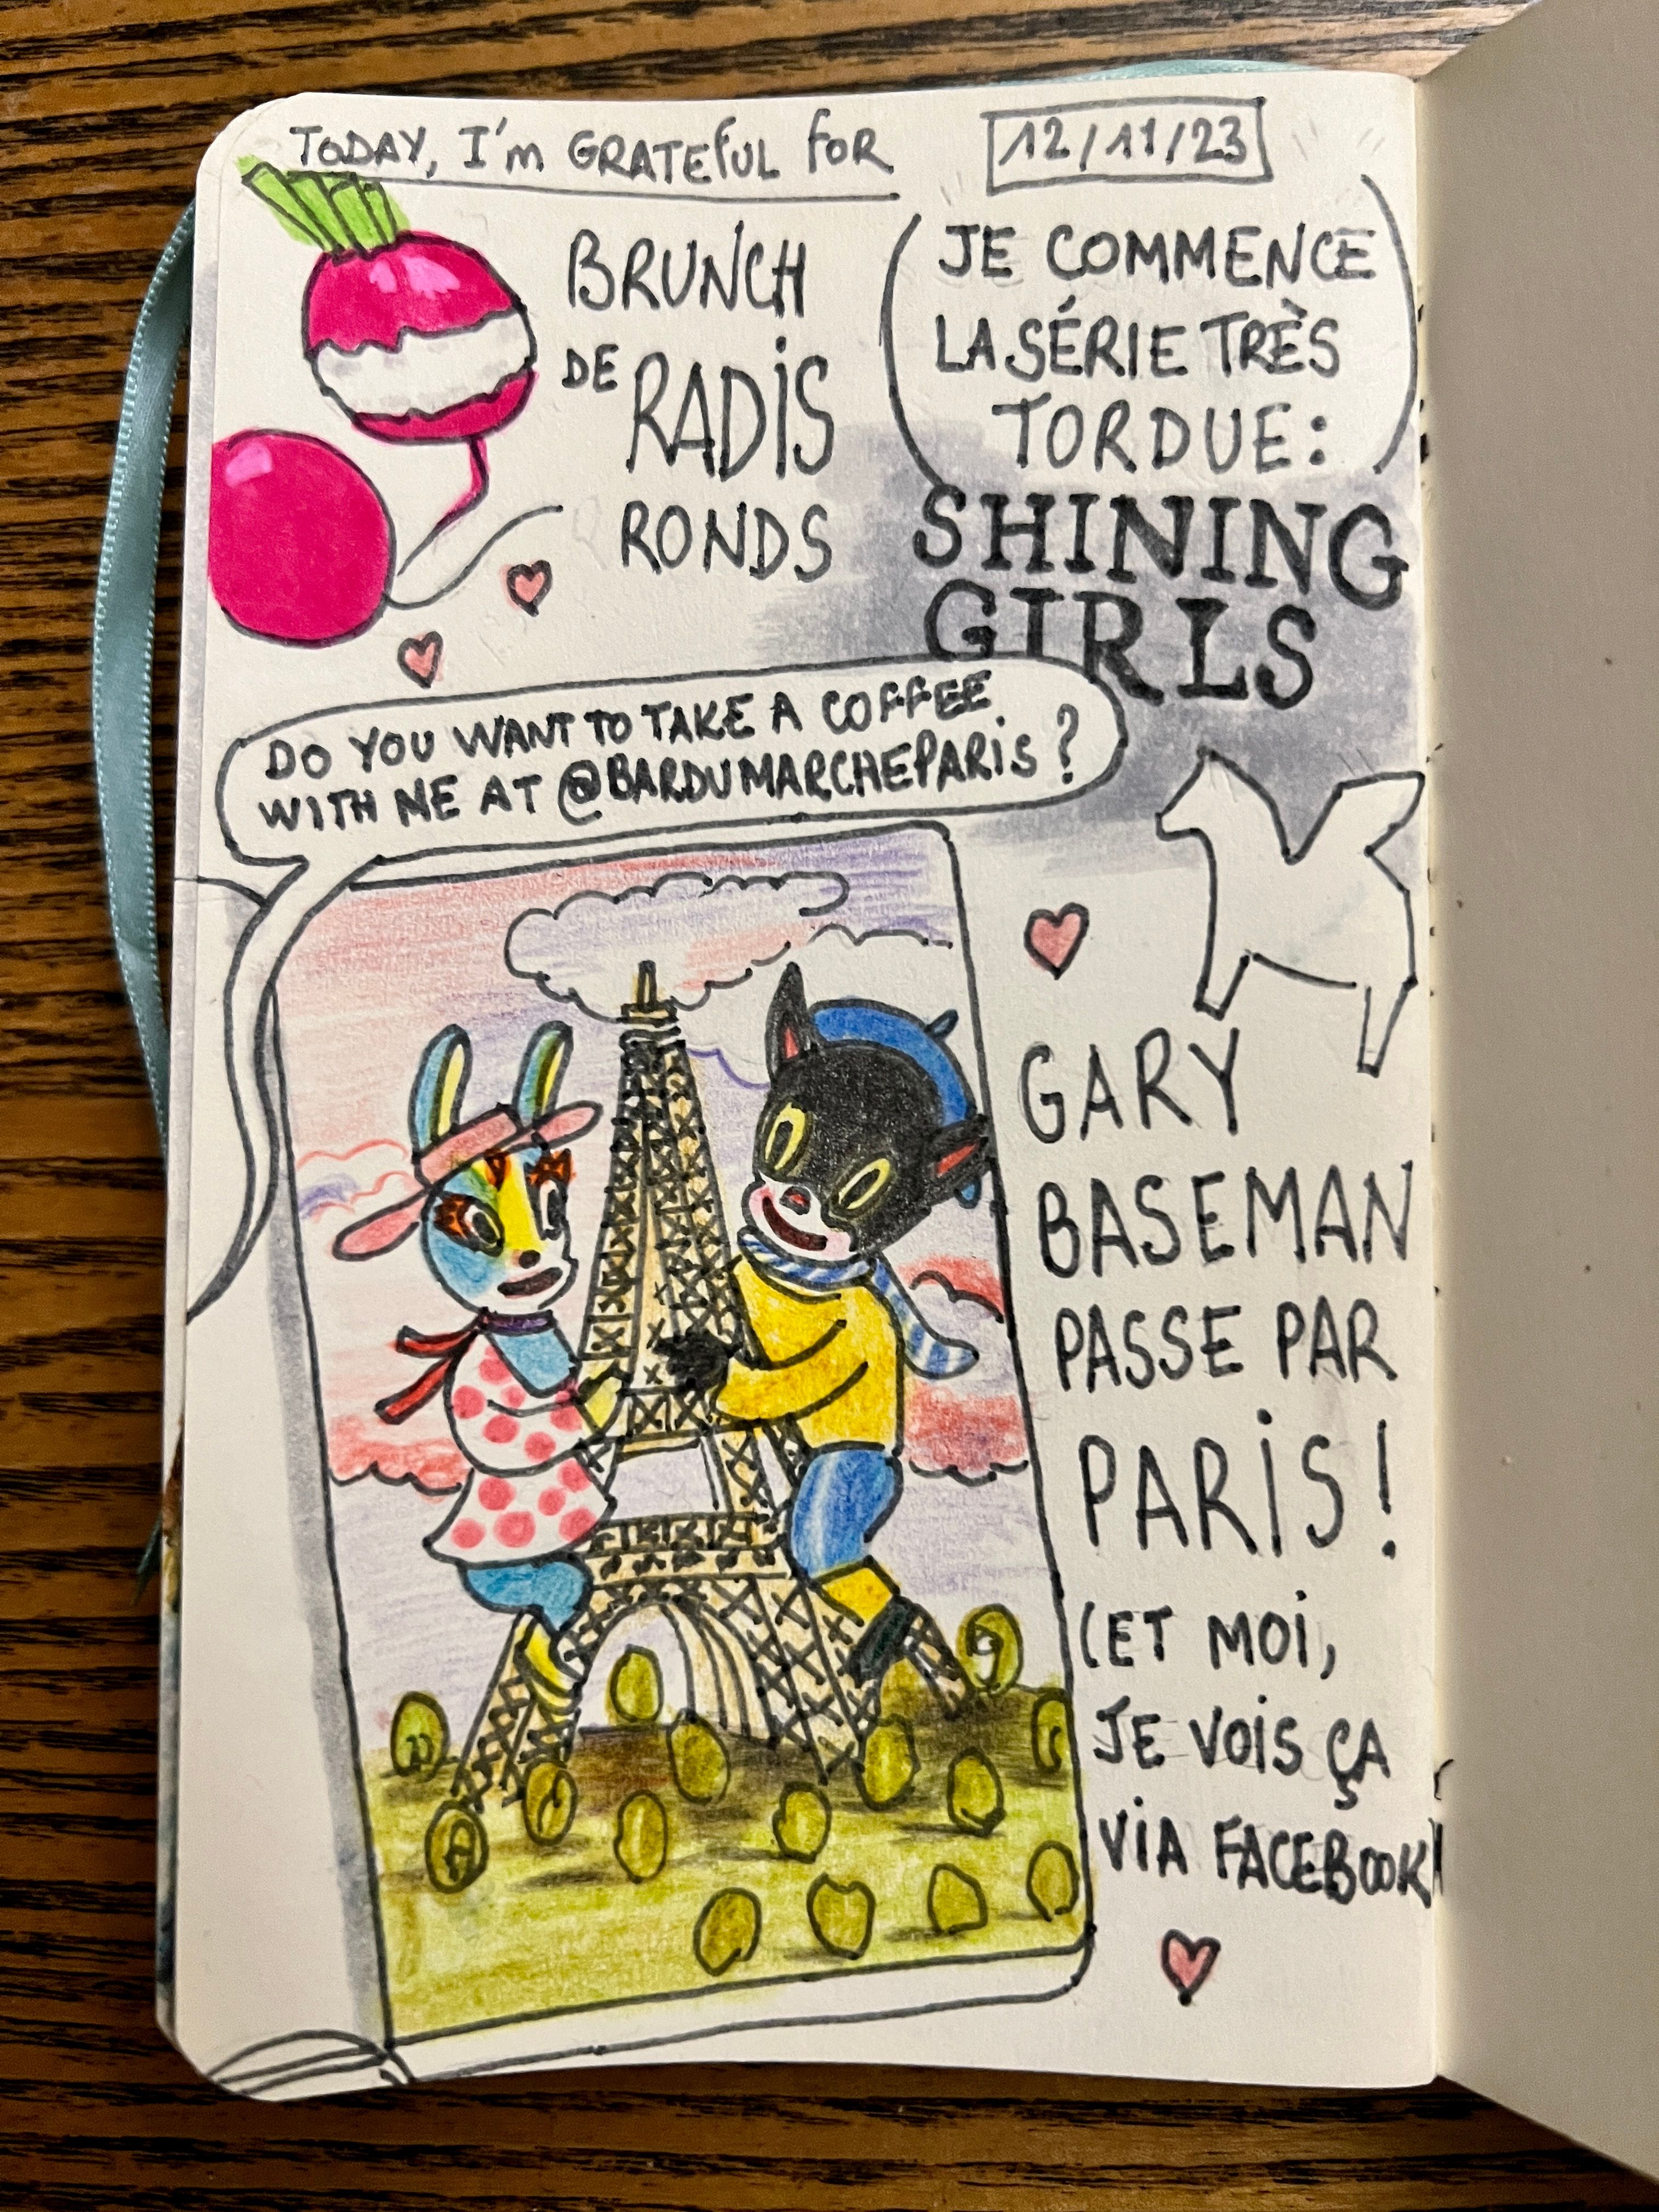 TODAY, I'm GRATEFUL FOR
12/11/23
BRUNCH
DE RADIS
RONDS
JE COMMENCE
LA SÉRIE TRÈS
TORDUE:
SHINING
GIRLS
DO YOU WANT TO TAKE A COFFEE
WITH ME AT @BARDUMARCHEPARIS?
GARY
BASEMAN
PASSE PAR
PARIS!
(ET MOI,
JE VOIS ÇA
VIA FACEBOOK)